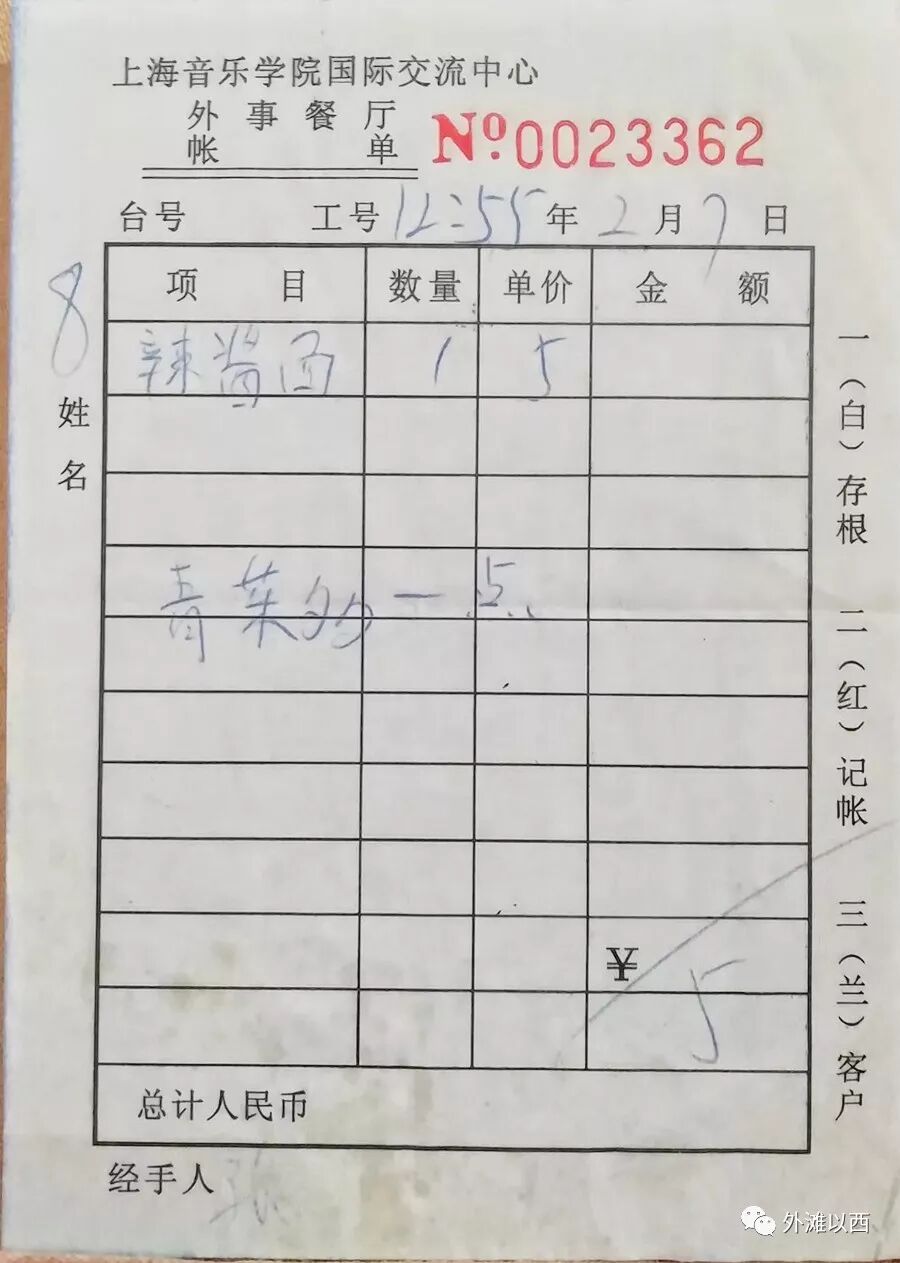 上海音乐学院国际交流中心
外事餐厅
帐单
№0023362
台号 工号 12:55 年 2 月 7 日
8
姓名
项目 数量 单价 金额
辣酱面 1 5
青菜多一点
¥ 5
总计人民币
经手人
一(白)存根 二(红)记帐 三(兰)客户
外滩以西